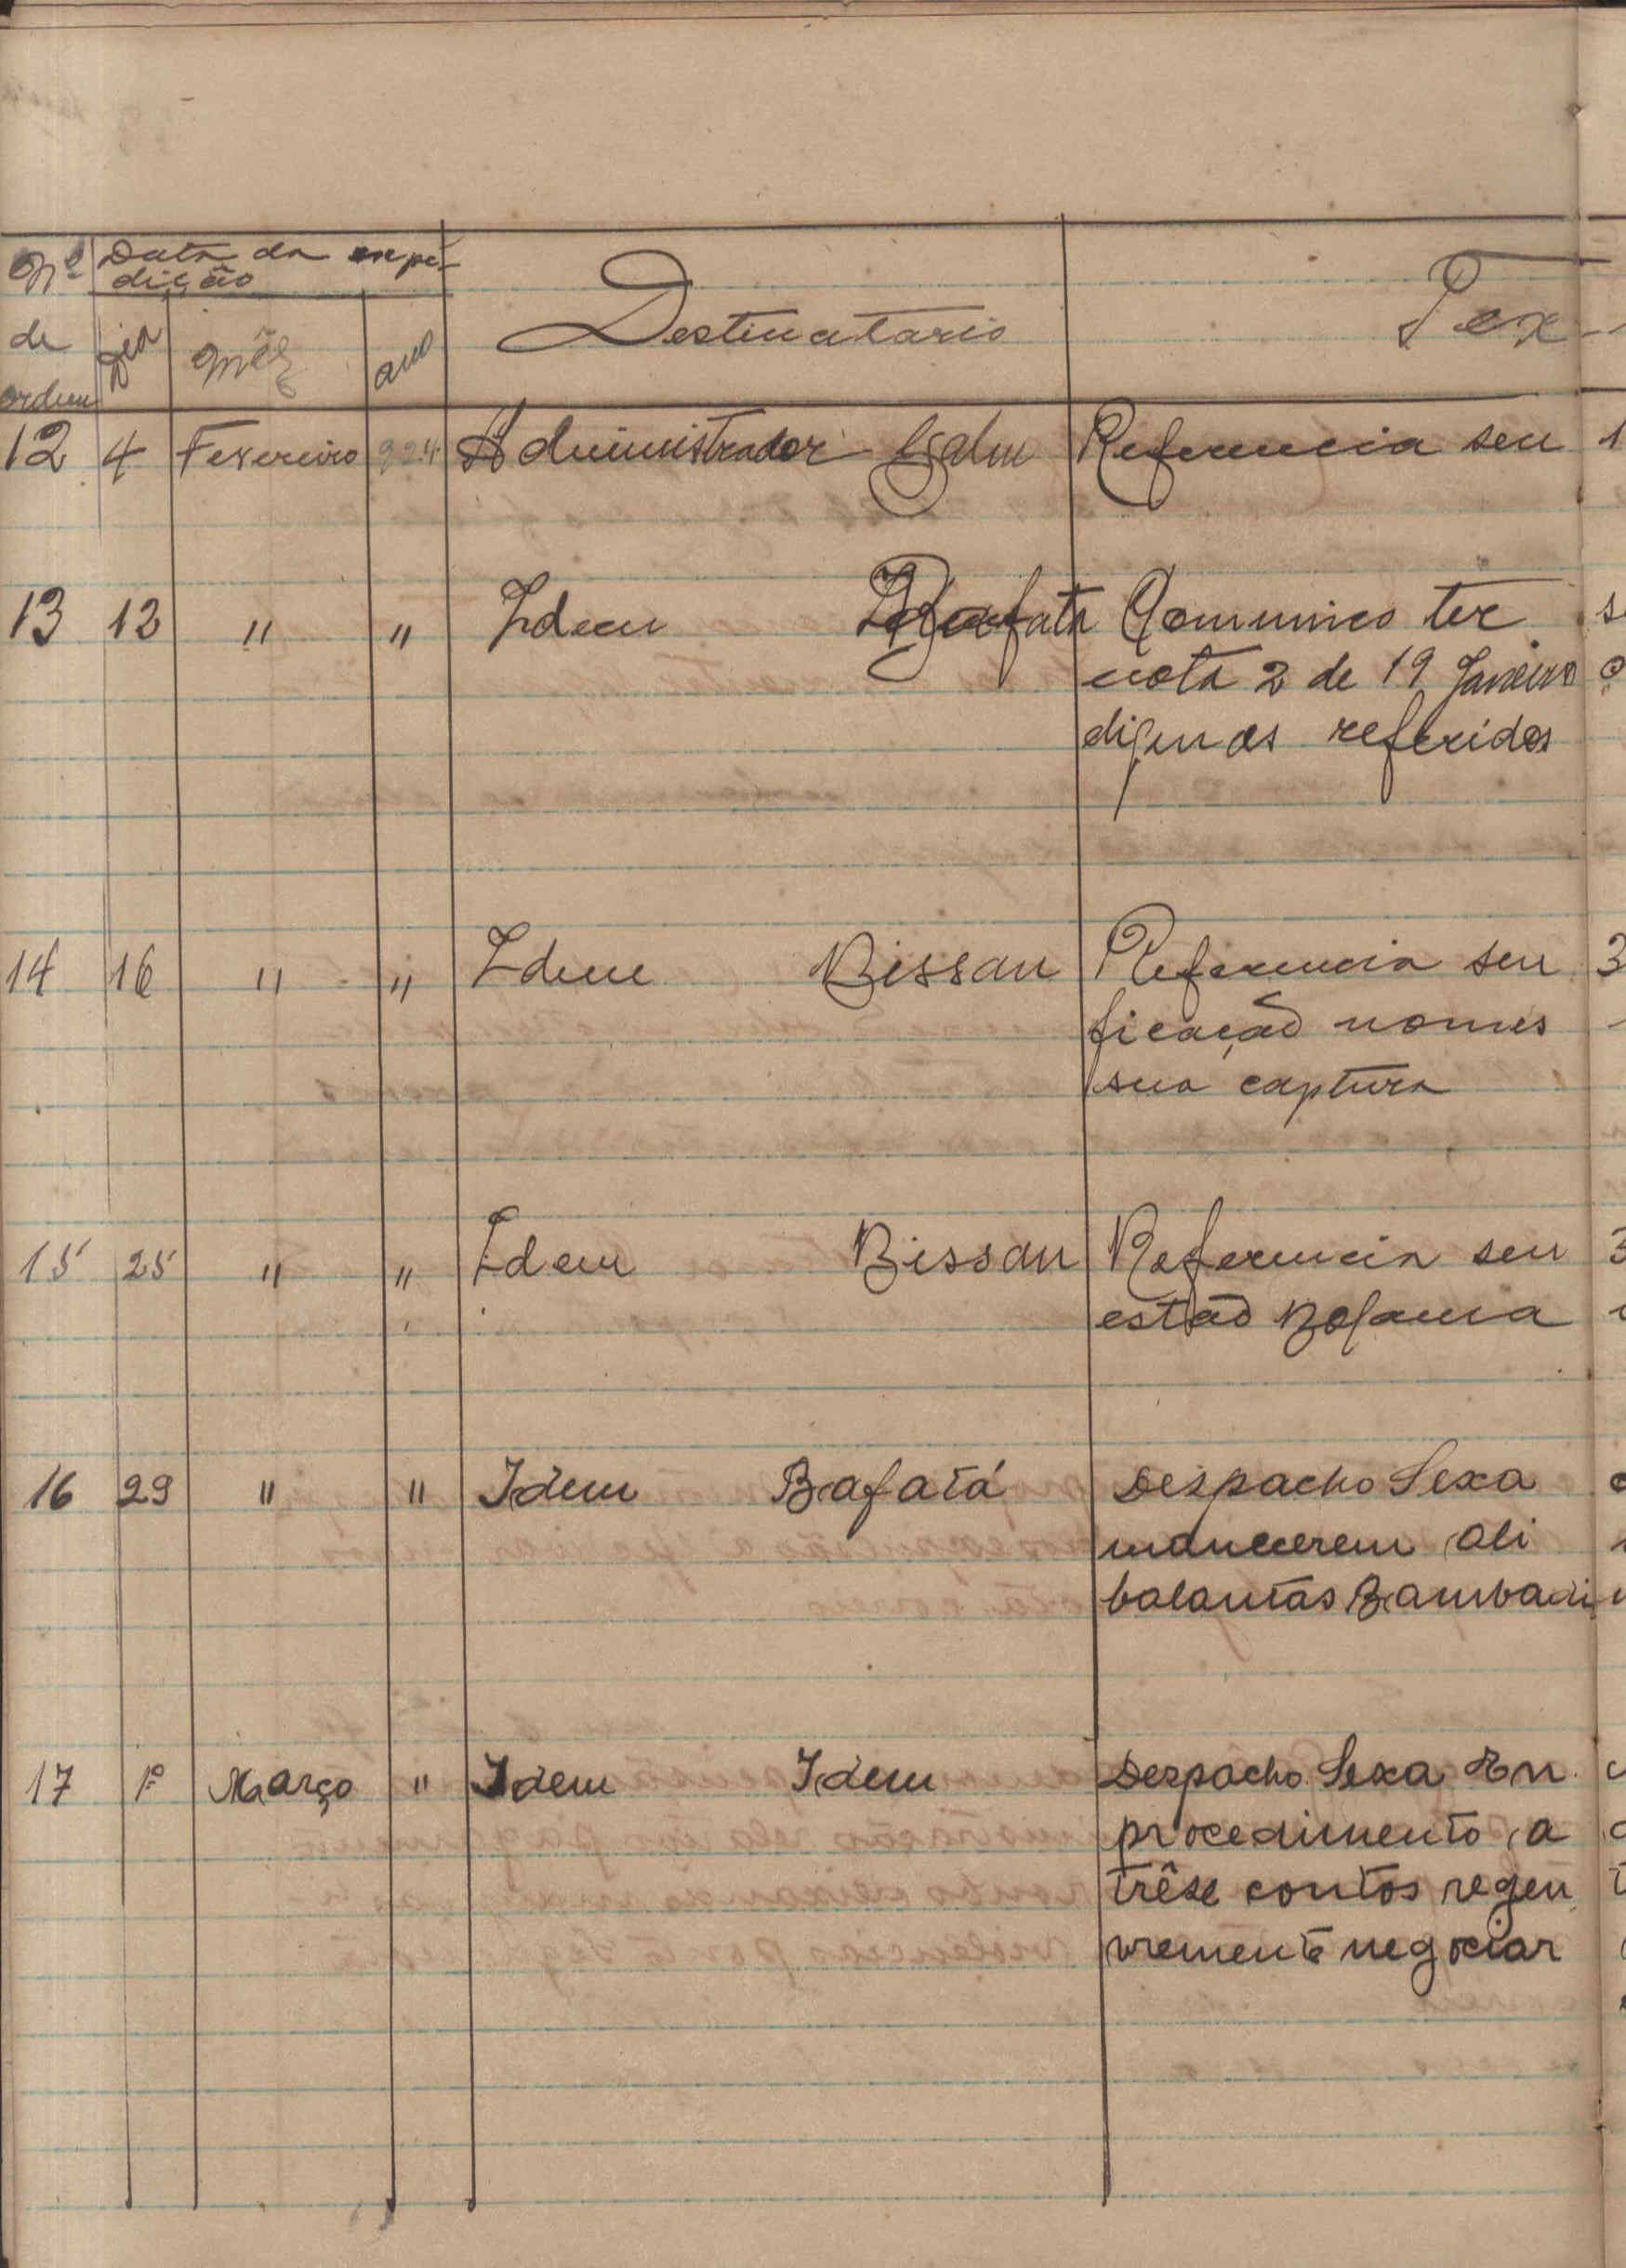 Nº Data da expe-
dição
de Dia Mês ano Destinatario Tex-
ordem
12 4 Fevereiro 924 Administrador Referencia seu 1
13 12 " " Idem Bafatá Comunico ter
nota 2 de 19 Janeiro
digenas referidos
14 16 " " Idem Bissau Referencia seu 3
ficação nomes
sua captura
15 25 " " Idem Bissau Referencia seu 3
estão Bolama
16 29 " " Idem Bafatá Despacho Sexa
manecerem ali
balantas Bambadi
17 1º Março " Idem Idem Despacho Sexa En
procedimento a
trêse contos regen
vremente negociar